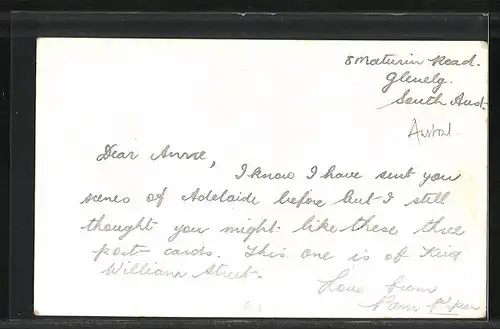 8 Maturin Road.
Glenelg.
South Aust.
Austral.
Dear Anne,
I know I have sent you
scenes of Adelaide before but I still
thought you might like these three
post-cards. This one is of King
William Street.
Love from
Pam